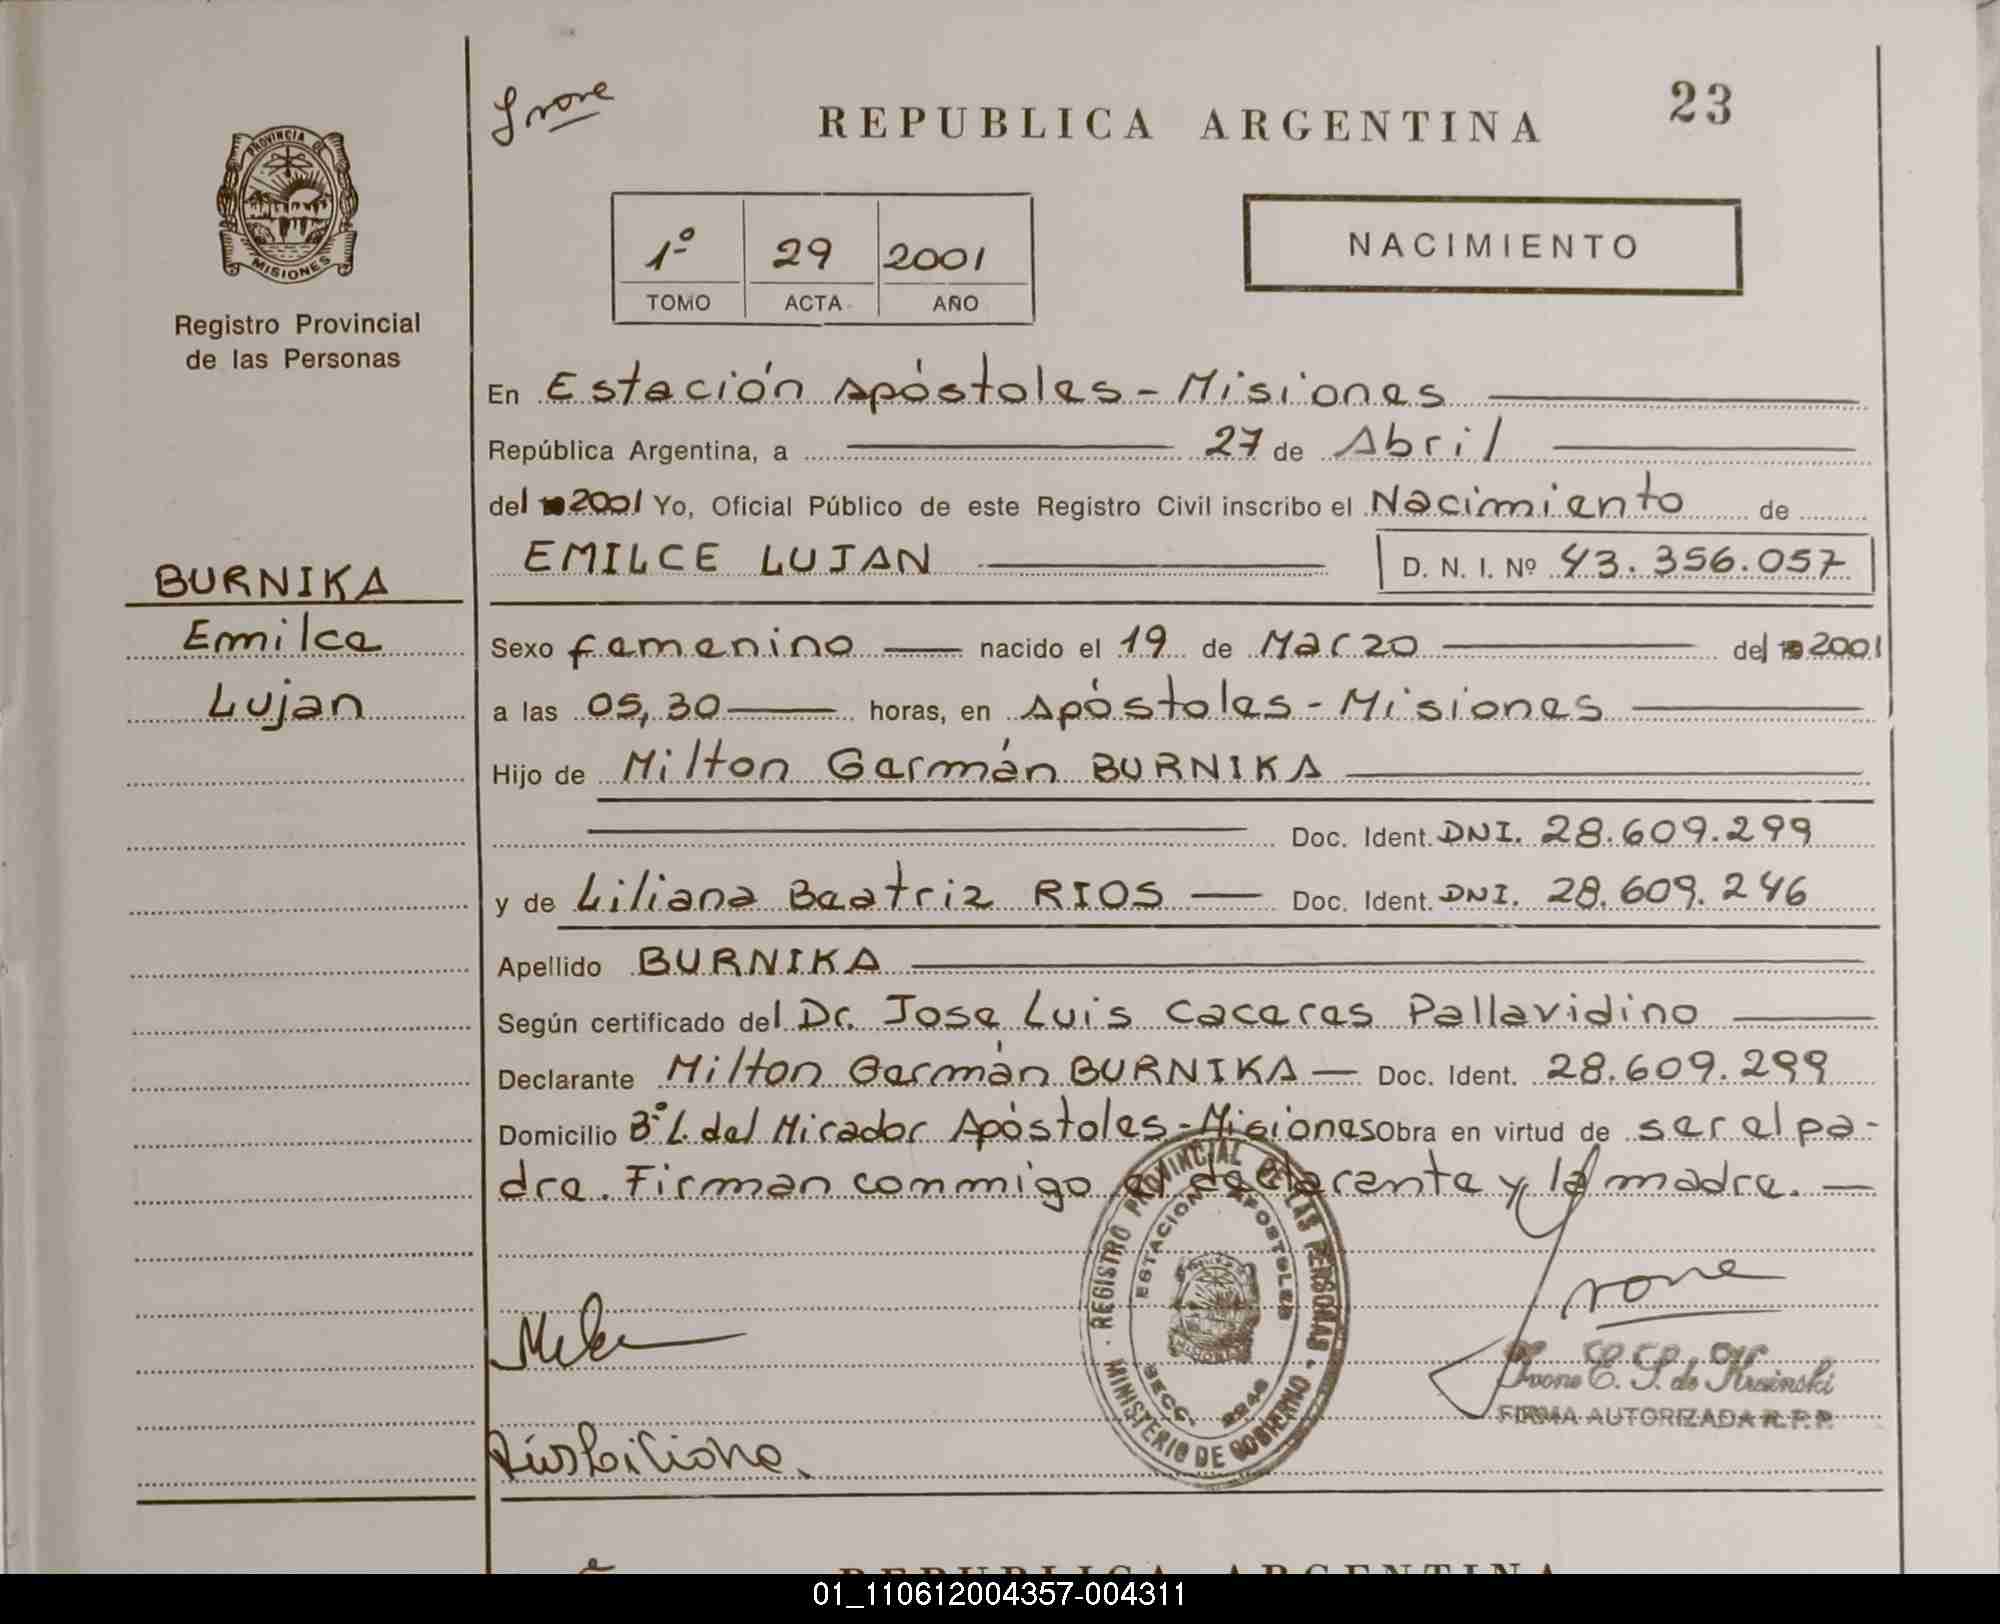 Ivone
REPUBLICA ARGENTINA
23
PROVINCIA DE
MISIONES
Registro Provincial
de las Personas
1º 29 2001
TOMO ACTA AÑO
NACIMIENTO
En Estación Apóstoles - Misiones
República Argentina, a 27 de Abril
del 2001 Yo, Oficial Público de este Registro Civil inscribo el Nacimiento de
EMILCE LUJAN D. N. I. Nº 43.356.057
BURNIKA
Emilce
Lujan
Sexo femenino nacido el 19 de Marzo del 2001
a las 05,30 horas, en Apóstoles - Misiones
Hijo de Milton Germán BURNIKA
Doc. Ident. DNI. 28.609.299
y de Liliana Beatriz RIOS Doc. Ident. DNI. 28.609.246
Apellido BURNIKA
Según certificado del Dr. Jose Luis Caceres Pallavidino
Declarante Milton Germán BURNIKA Doc. Ident. 28.609.299
Domicilio Bº L. del Mirador Apóstoles - Misiones Obra en virtud de ser el pa-
dre. Firman conmigo el declarante y la madre.
REGISTRO PROVINCIAL DE LAS PERSONAS
ESTACION APOSTOLES
SECC. 2246
MINISTERIO DE GOBIERNO
Ivone
Ivone E. S. de Krsinski
FIRMA AUTORIZADA R.P.P.
REPUBLICA ARGENTINA
01_110612004357-004311